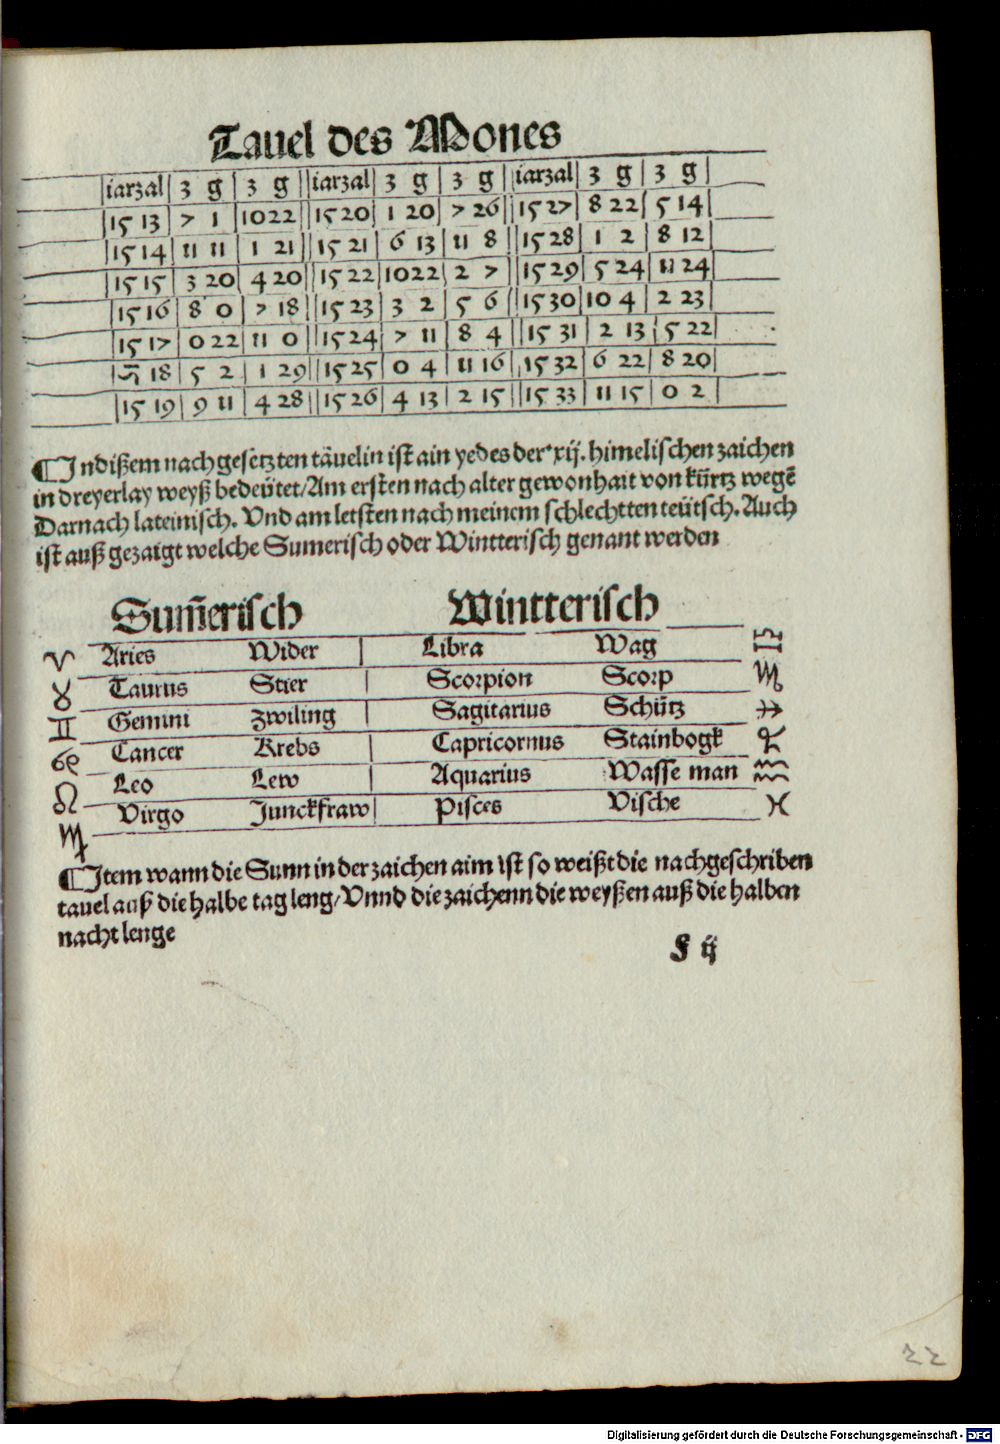 Tauel des Mones
iarzal 3 g 3 g iarzal 3 g 3 g iarzal 3 g 3 g
15 13 7 1 10 22 15 20 1 20 7 26 15 27 8 22 5 14
15 14 11 11 1 21 15 21 6 13 11 8 15 28 1 2 8 12
15 15 3 20 4 20 15 22 10 22 2 7 15 29 5 24 11 24
15 16 8 0 7 18 15 23 3 2 5 6 15 30 10 4 2 23
15 17 0 22 11 0 15 24 7 11 8 4 15 31 2 13 5 22
15 18 5 2 1 29 15 25 0 4 11 16 15 32 6 22 8 20
15 19 9 11 4 28 15 26 4 13 2 15 15 33 11 15 0 2
¶ In dißem nach gesetzten täuelin ist ain yedes der xij. himelischen zaichen
in dreyerlay weyß bedeütet/Am ersten nach alter gewonhait von kürtz wegē
Darnach lateinisch. Vnd am letsten nach meinem schlechtten teütsch. Auch
ist auß gezaigt welche Sumerisch oder Wintterisch genant werden
Sum̄erisch Wintterisch
♈ Aries Wider Libra Wag ♎
♉ Taurus Stier Scorpion Scorp ♏
♊ Gemini Zwiling Sagitarius Schütz ♐
♋ Cancer Krebs Capricornus Stainbogk ♑
♌ Leo Lew Aquarius Wasse man ♒
♍ Virgo Junckfraw Pisces Vische ♓
¶ Item wann die Sunn in der zaichen aim ist so weißt die nachgeschriben
tauel auß die halbe tag leng/Vnnd die zaichenn die weyßen auß die halben
nacht lenge
f ij
22
Digitalisierung gefördert durch die Deutsche Forschungsgemeinschaft - DFG